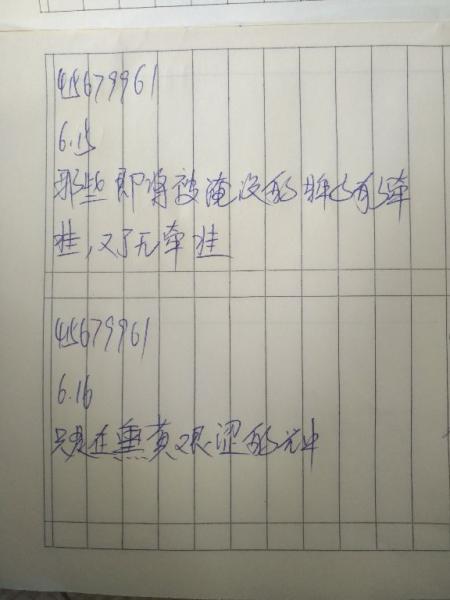 415679961
6.15
那些即将被淹没的 有牵
挂，又了无牵挂
415679961
6.16
只是在熏黄又 涩的光中